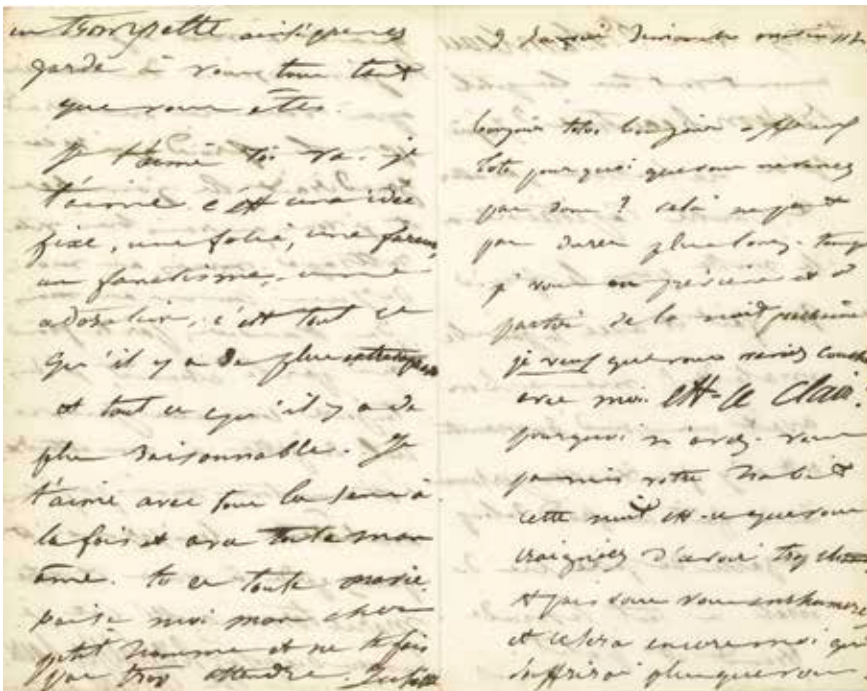 en trompette ainsi prenez
garde à vous tous tant
que vous êtes.
Je t'aime toi va. je
t'aime c'est une idée
fixe, une folie, une fureur,
un fanatisme, une
adoration, c'est tout ce
qu'il y a de plus
et tout ce qu'il y a de
plus raisonnable. Je
t'aime avec tous les sens à
la fois et avec toute mon
âme. tu es toute ma vie.
baise moi mon cher
petit homme et ne te fais
pas trop attendre. Juliette
9 janvier dimanche matin 11 h.
bonjour toto bonjour
toto pourquoi que vous ne venez
pas donc ? cela ne peut
pas durer plus longtemps
je vous en préviens et à
partir de la nuit prochaine
je veux que vous veniez coucher
avec moi. Est-ce clair.
pourquoi n'avez-vous
pas mis votre habit
cette nuit est-ce que vous
craigniez d'avoir trop chaud
et puis vous vous enrhumerez
et ce sera encore moi qui
souffrirai plus que vous